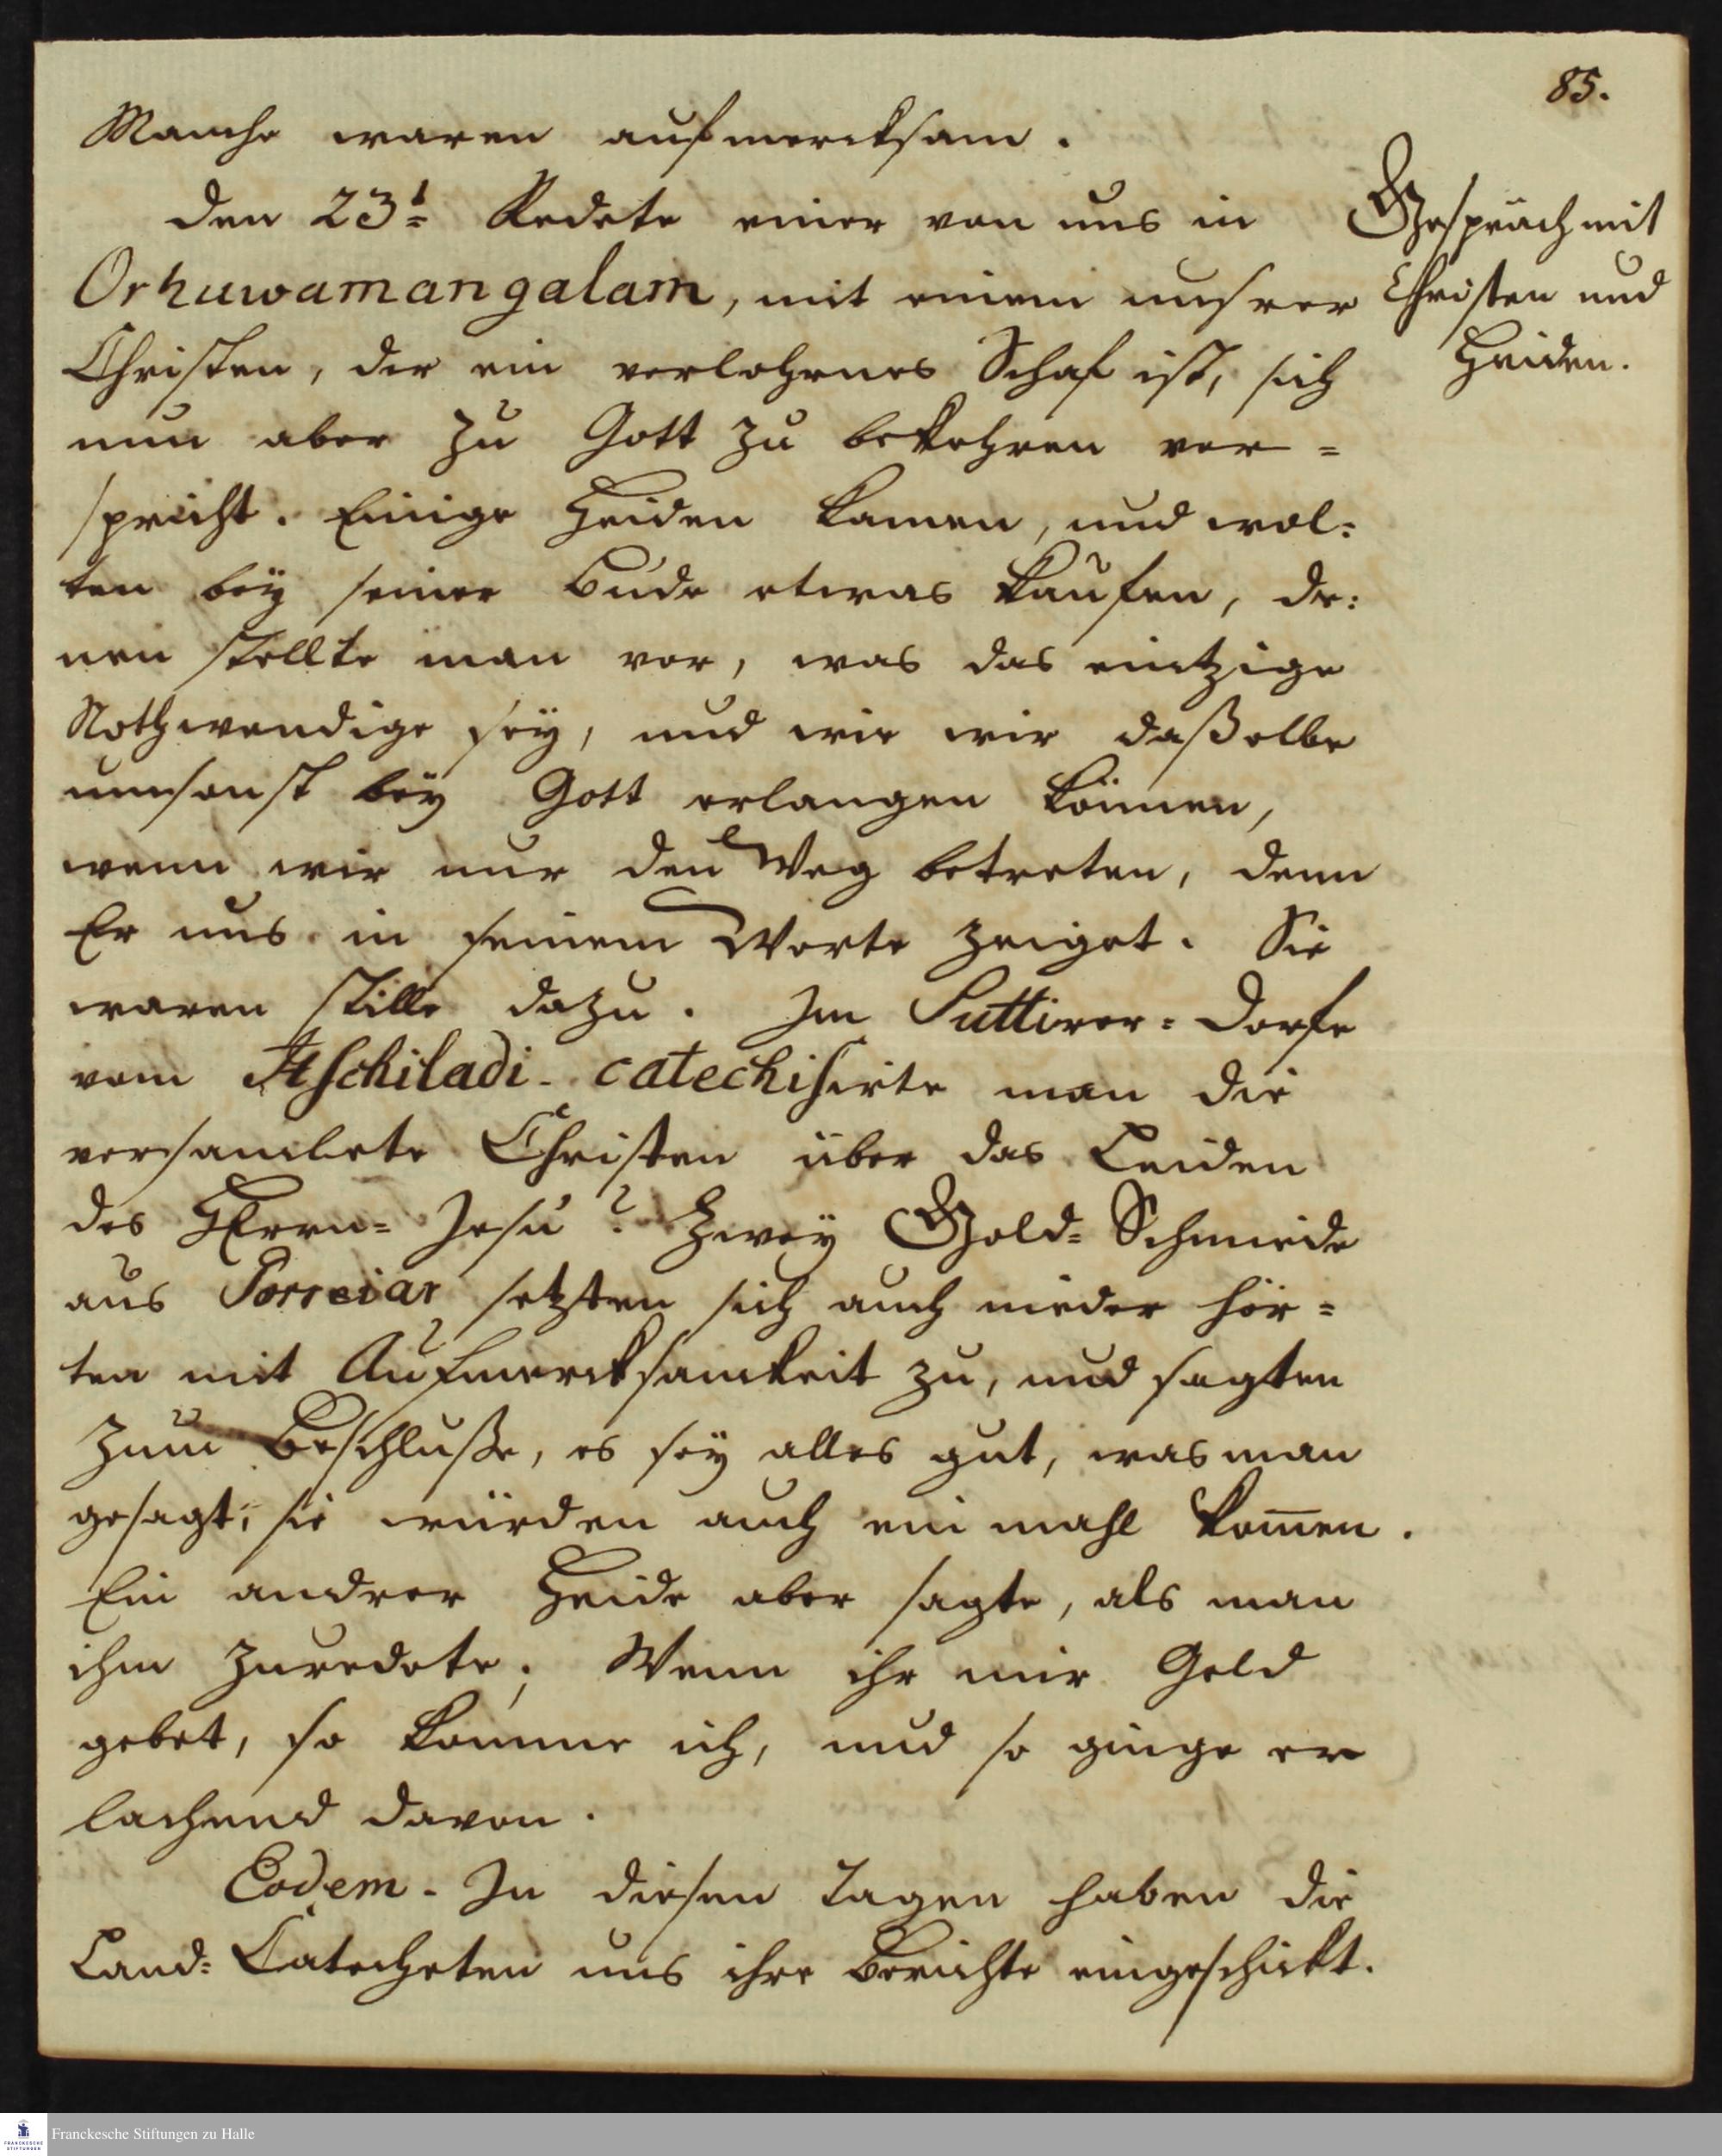 85.
Manche waren aufmercksam.
den 23t Redete einer von uns in
Orhuwamangalam, mit einem unsrer
Christen, der ein verlohrnes Schaf ist, sich
nun aber zu Gott zu bekehren ver=
spricht. Einige Heiden kamen, und wol=
ten bey seiner Bude etwas kaufen, de=
nen stellte man vor, was das eintzige
Nothwendige sey, und wie wir daßelbe
umsonst bey Gott erlangen können,
wenn wir nur den Weg betreten, denn
Er uns in seinem Worte zeiget. Sie
waren stille dazu. Im Suttirer=Dorfe
vom Aschiladi- catechisirte man die
versamlete Christen über das Leiden
des HErrn=Jesu? Zwey Gold=Schmiede
aus Porreiar setzten sich auch nieder hör=
ten mit Aufmercksamkeit zu, und sagten
zum Beschluße, es sey alles gut, was man
gesagt; sie würden auch ein mahl kom̄en.
Ein andrer Heide aber sagte, als man
ihm zuredete; Wenn ihr mir Geld
gebet, so komme ich, und so ginge er
lachend davon.
Eodem. In diesen Tagen haben die
Land=Catecheten uns ihre Berichte eingeschickt.
Gespräch mit
Christen und
Heiden.
Franckesche Stiftungen zu Halle
FRANCKESCHE
STIFTUNGEN